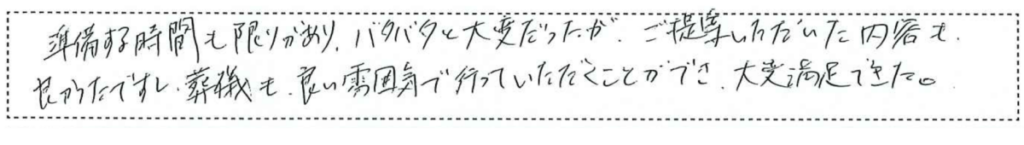 準備する時間も限りがあり、バタバタと大変だったが、ご提案いただいた内容も、
良かったですし、葬儀も、良い雰囲気で行っていただくことができ、大変満足できた。